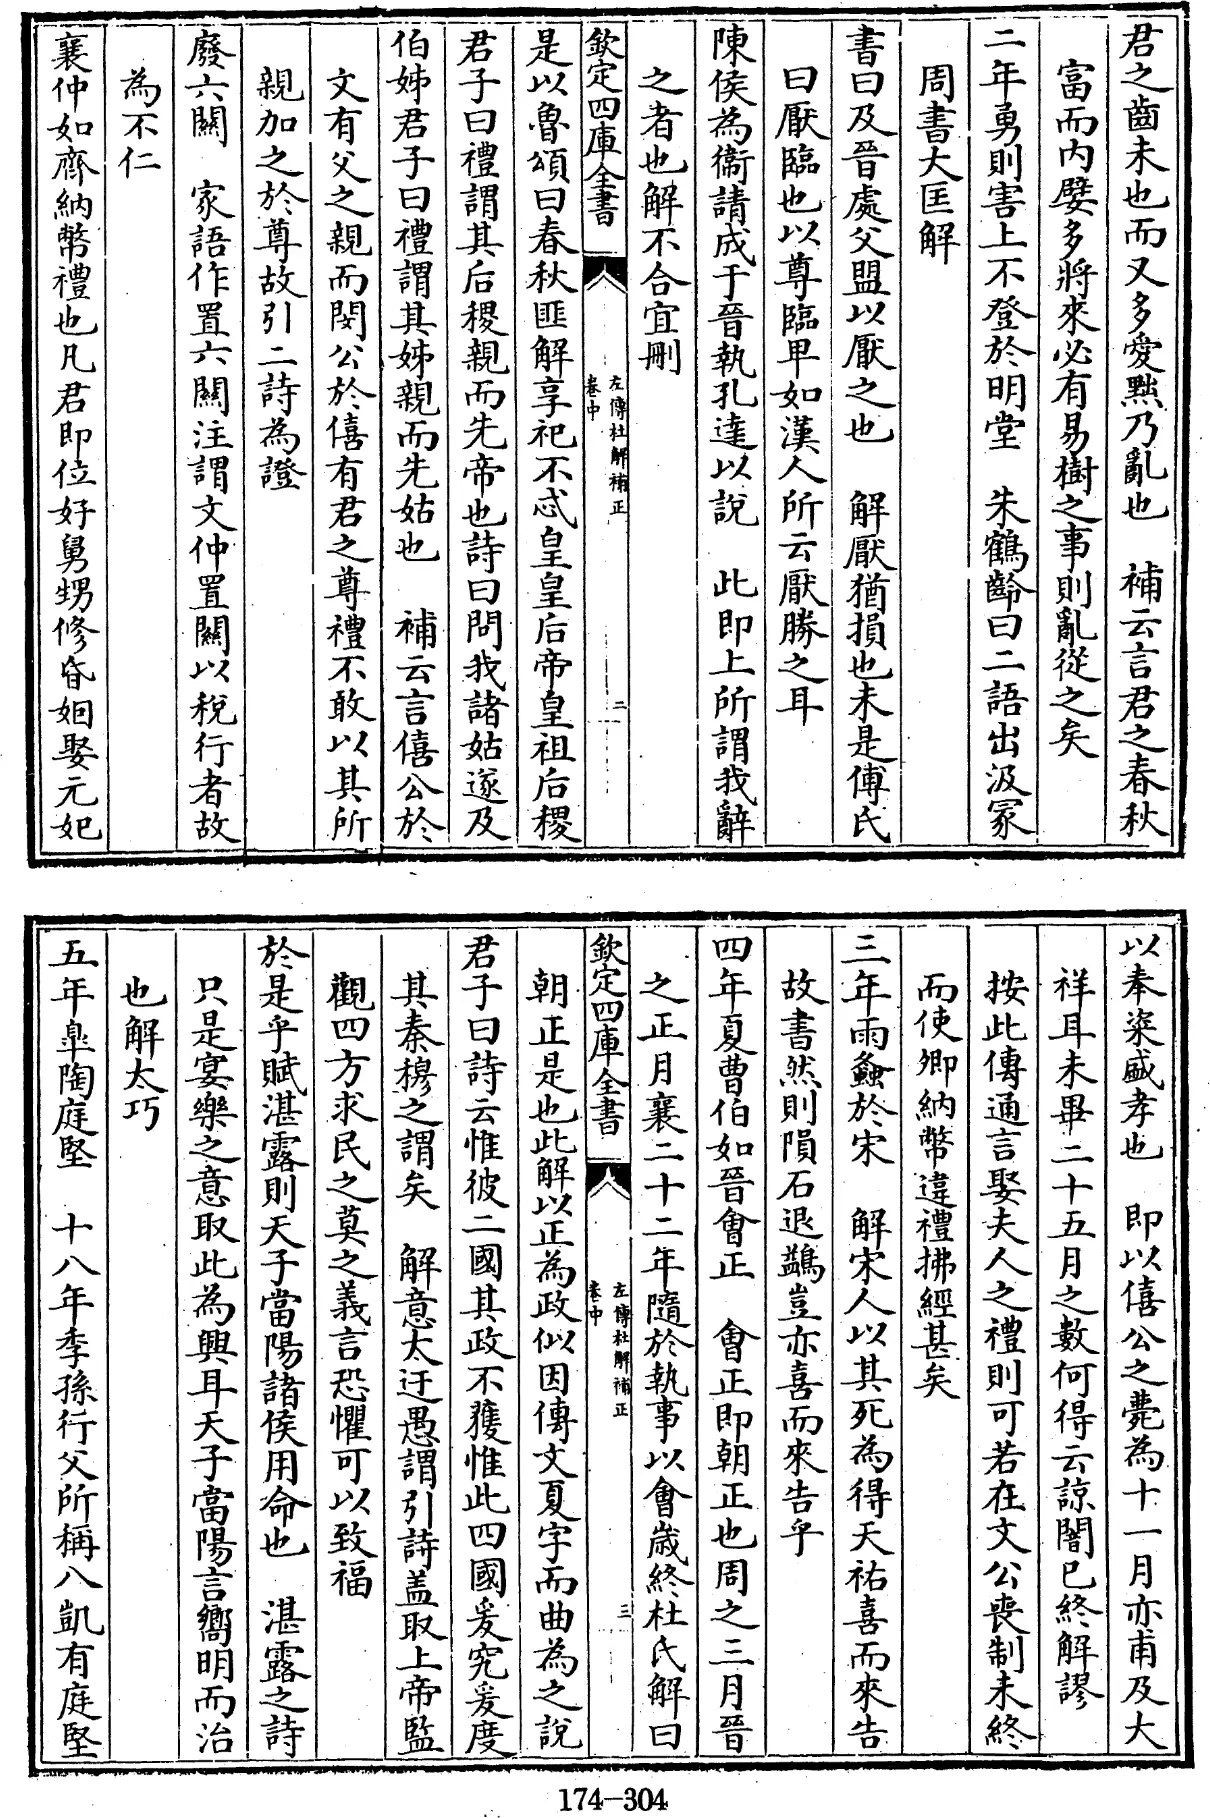 君之齒未也而又多愛黜乃亂也　補云言君之春秋
富而内嬖多將來必有易樹之事則亂從之矣
二年勇則害上不登於明堂　朱鶴齡曰二語出汲冢
周書大匡解
書曰及晉處父盟以厭之也　解厭猶損也未是傅氏
曰厭臨也以尊臨卑如漢人所云厭勝之耳
陳侯為衞請成于晉執孔達以說　此即上所謂我辭
之者也解不合宜刪
欽定四庫全書
左傳杜解補正
卷中
二
是以魯頌曰春秋匪解享祀不忒皇皇后帝皇祖后稷
君子曰禮謂其后稷親而先帝也詩曰問我諸姑遂及
伯姊君子曰禮謂其姊親而先姑也　補云言僖公於
文有父之親而閔公於僖有君之尊禮不敢以其所
親加之於尊故引二詩為證
廢六關　家語作置六關注謂文仲置關以稅行者故
為不仁
襄仲如齊納幣禮也凡君即位好舅甥修昏姻娶元妃
以奉粢盛孝也　即以僖公之薨為十一月亦甫及大
祥耳未畢二十五月之數何得云諒闇已終解謬
按此傳通言娶夫人之禮則可若在文公喪制未終
而使卿納幣違禮拂經甚矣
三年雨螽於宋　解宋人以其死為得天祐喜而來告
故書然則隕石退鷁豈亦喜而來告乎
四年夏曹伯如晉會正　會正即朝正也周之三月晉
之正月襄二十二年隨於執事以會歲終杜氏解曰
欽定四庫全書
左傳杜解補正
卷中
三
朝正是也此解以正為政似因傳文夏字而曲為之說
君子曰詩云惟彼二國其政不獲惟此四國爰究爰度
其秦穆之謂矣　解意太迂愚謂引詩盖取上帝監
觀四方求民之莫之義言恐懼可以致福
於是乎賦湛露則天子當陽諸侯用命也　湛露之詩
只是宴樂之意取此為興耳天子當陽言嚮明而治
也解太巧
五年臯陶庭堅　十八年季孫行父所稱八凱有庭堅
174-304